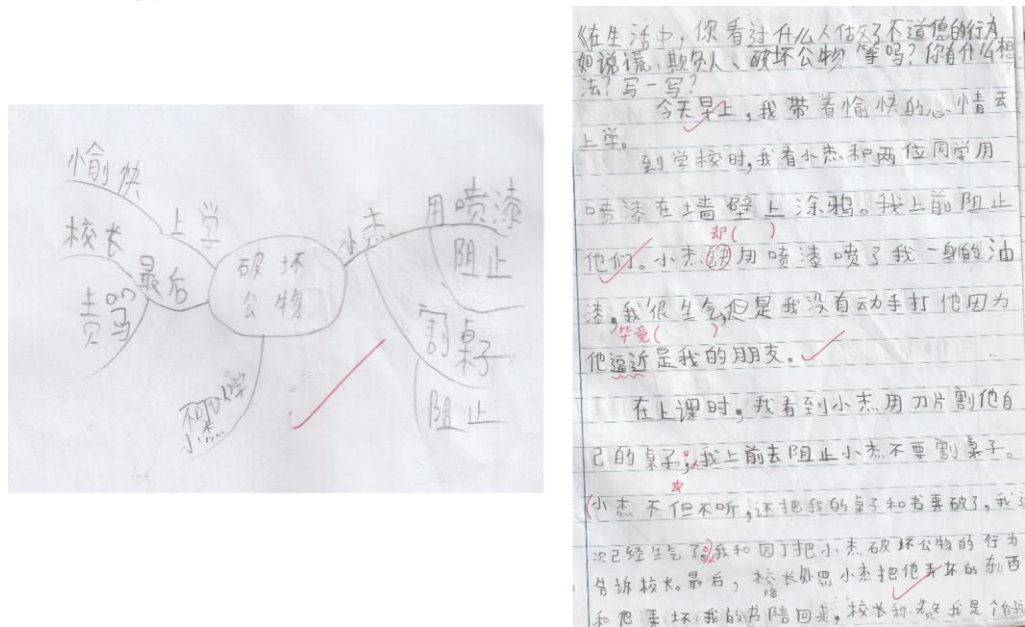 愉快
上学
校长
最后
责骂
破坏
公物
小杰
用喷漆
阻止
割桌子
阻止
不可以学
小杰
《在生活中，你看过什么人做了不道德的行为
如说谎、欺负人、破坏公物等吗？你有什么想
法？写一写？
今天早上，我带着愉快的心情去
上学。
到学校时，我看小杰和两位同学用
喷漆在墙壁上涂鸦。我上前阻止
却（ ）
他们。小杰用喷漆喷了我一身的油
漆，我很生气，但是我没有动手打他因为
毕竟（ ）
他逼近是我的朋友。
在上课时，我看到小杰用刀片割他自
己的桌子，我上前去阻止小杰不要割桌子。
（小杰不但不听，还把我的桌子和书弄破了，我
次已经生气了。我和园丁把小杰破坏公物的行为
告诉校长。最后，校长处罚小杰把他弄坏的东西
和他弄坏我的书陪回来，校长称赞我是个